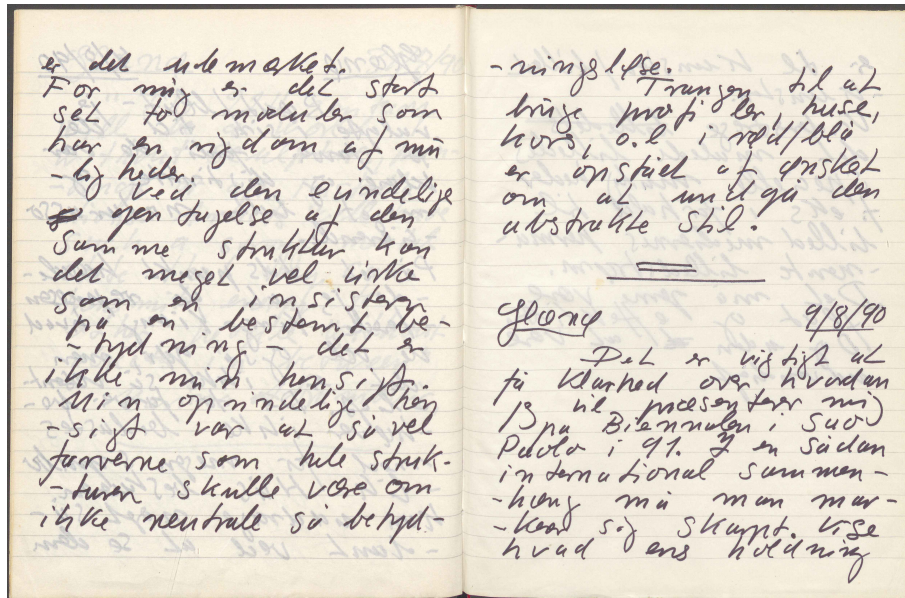 er det udemærket.
For mig er det stort
set to moduler som
har en rigdom af mu
-ligheder.
Ved den endelige
gentagelse af den
samme struktur kan
det meget vel virke
som en insisteren
på en bestemt be-
-tydning - det er
ikke min hensigt.
Min oprindelige hen
-sigt var at såvel
farverne som hele struk-
-turen skulle være om
ikke neutrale så betyd-
-ningsløse.
Trangen til at
bruge profiler, huse,
kors, o.l i rød/blå
er opstået af ønsket
om at undgå den
abstrakte stil.
9/8/90
Det er vigtigt at
få klarhed over hvordan
jeg vil præsentere mig
på Biennalen i Sao
Paolo i 91. I en sådan
international sammen-
-hæng må man mar-
-kere sig skarpt. Vise
hvad ens holdning